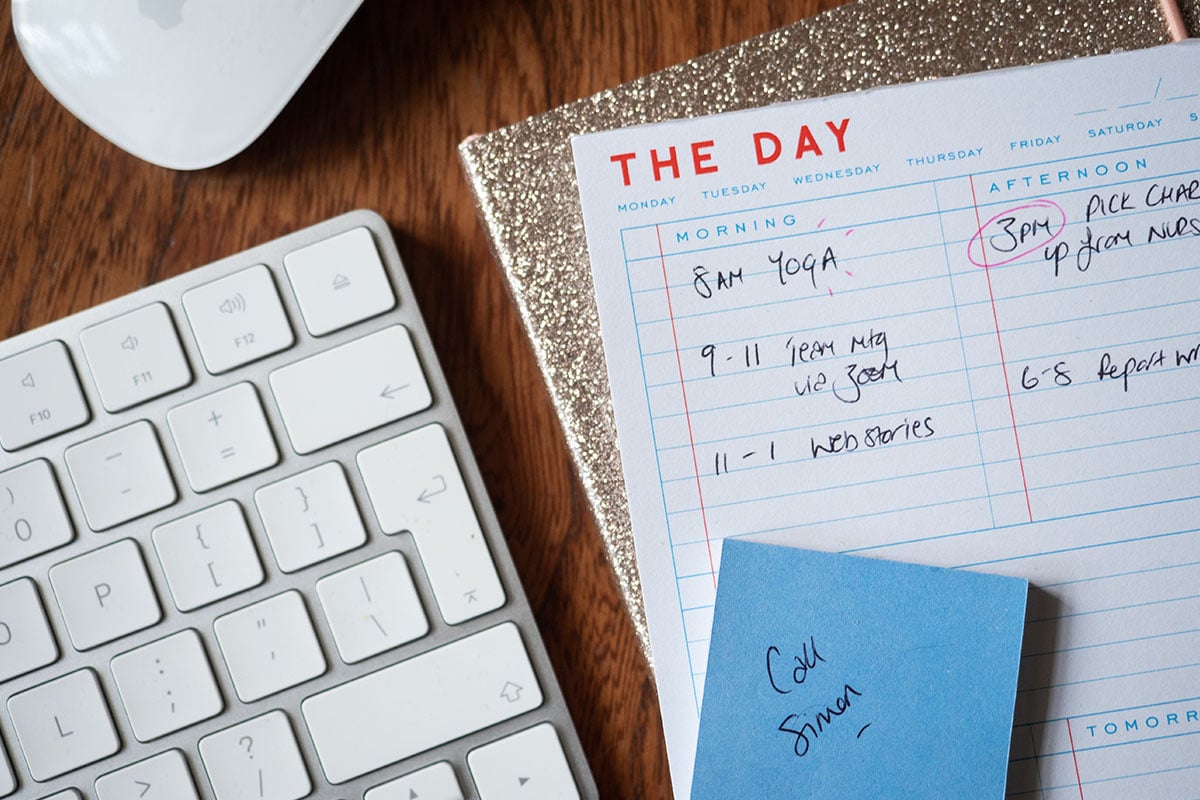 THE DAY
MONDAY TUESDAY WEDNESDAY THURSDAY FRIDAY SATURDAY S
MORNING
8AM YOGA
9 - 11 Team Mtg
via Zoom
11 - 1 Web stories
AFTERNOON
3PM PICK CHAR
up from NURS
6-8 Report wr
TOMORR
Call
Simon
F10
F11
F12
+
=
—
-
)
0
{
[
}
]
P
|
\
"
'
:
;
L
?
/
>